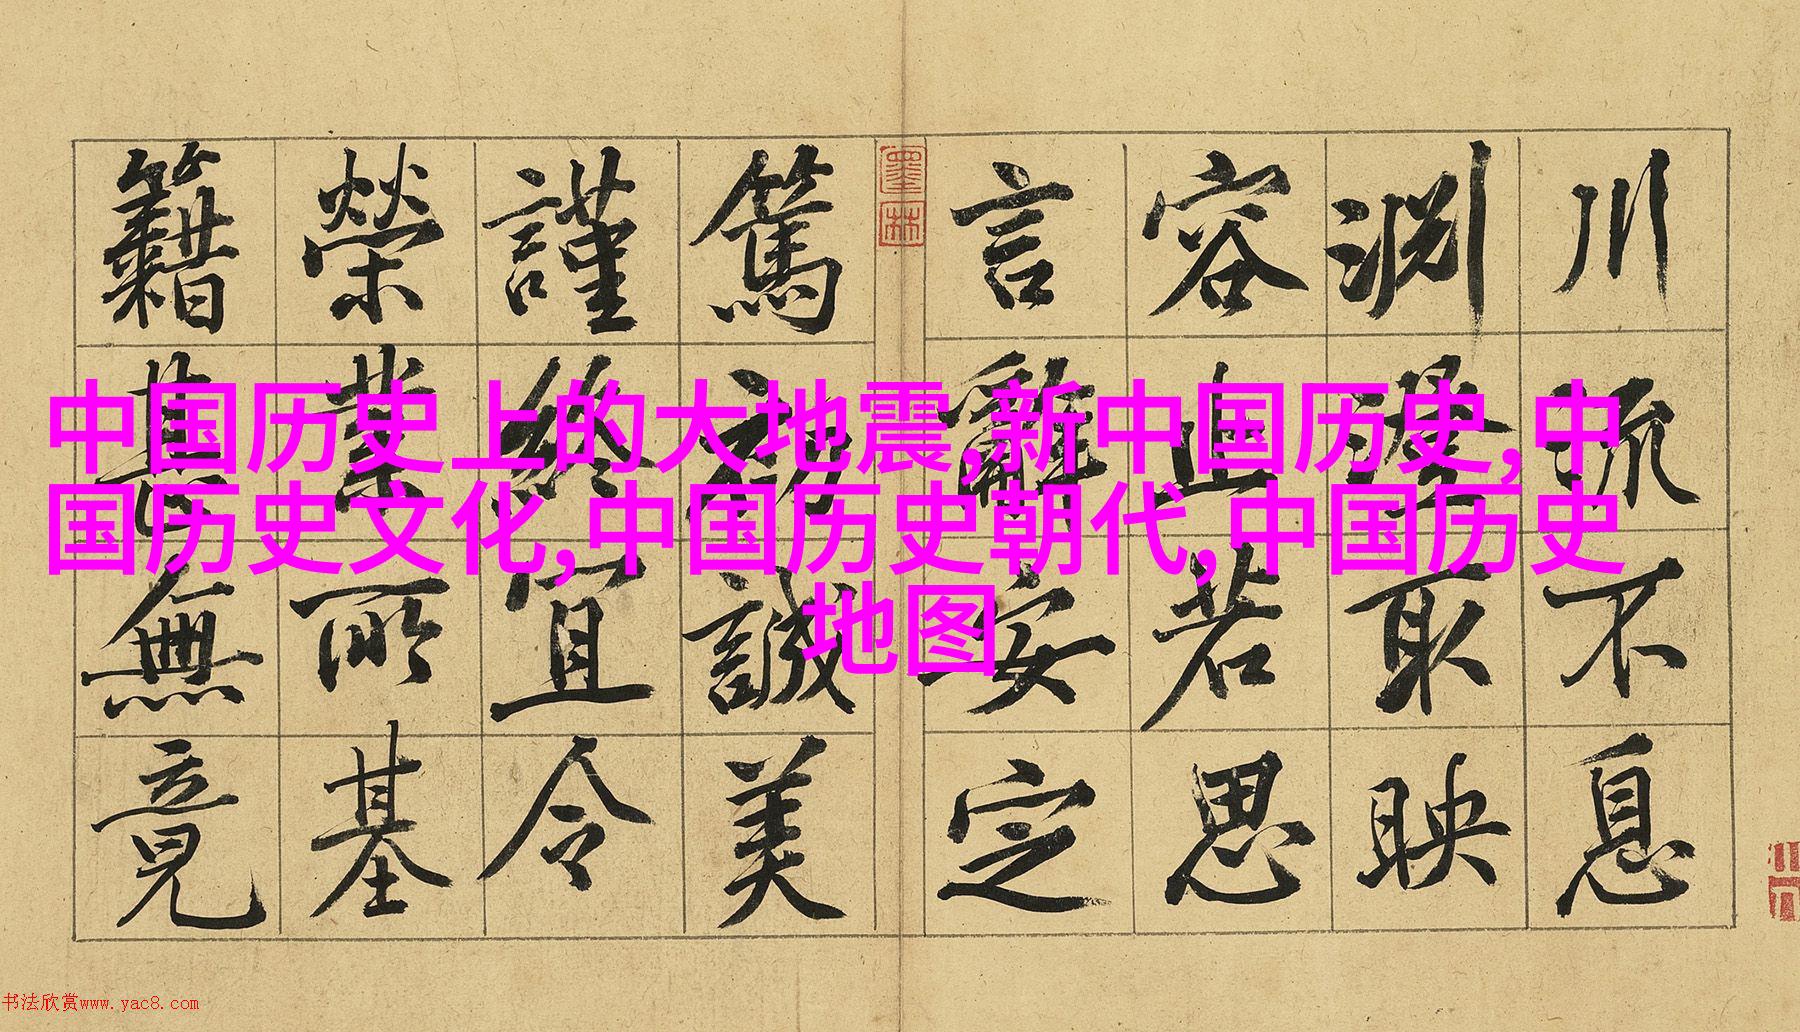 川流不息
淵澄取映
容止若思
言辭安定
墨林
篤初誠美
謹終宜令
榮業所基
籍甚無竟
中国历史上的大地震,新中国历史,中
国历史文化,中国历史朝代,中国历史
地图
书法欣赏www.yac8.com